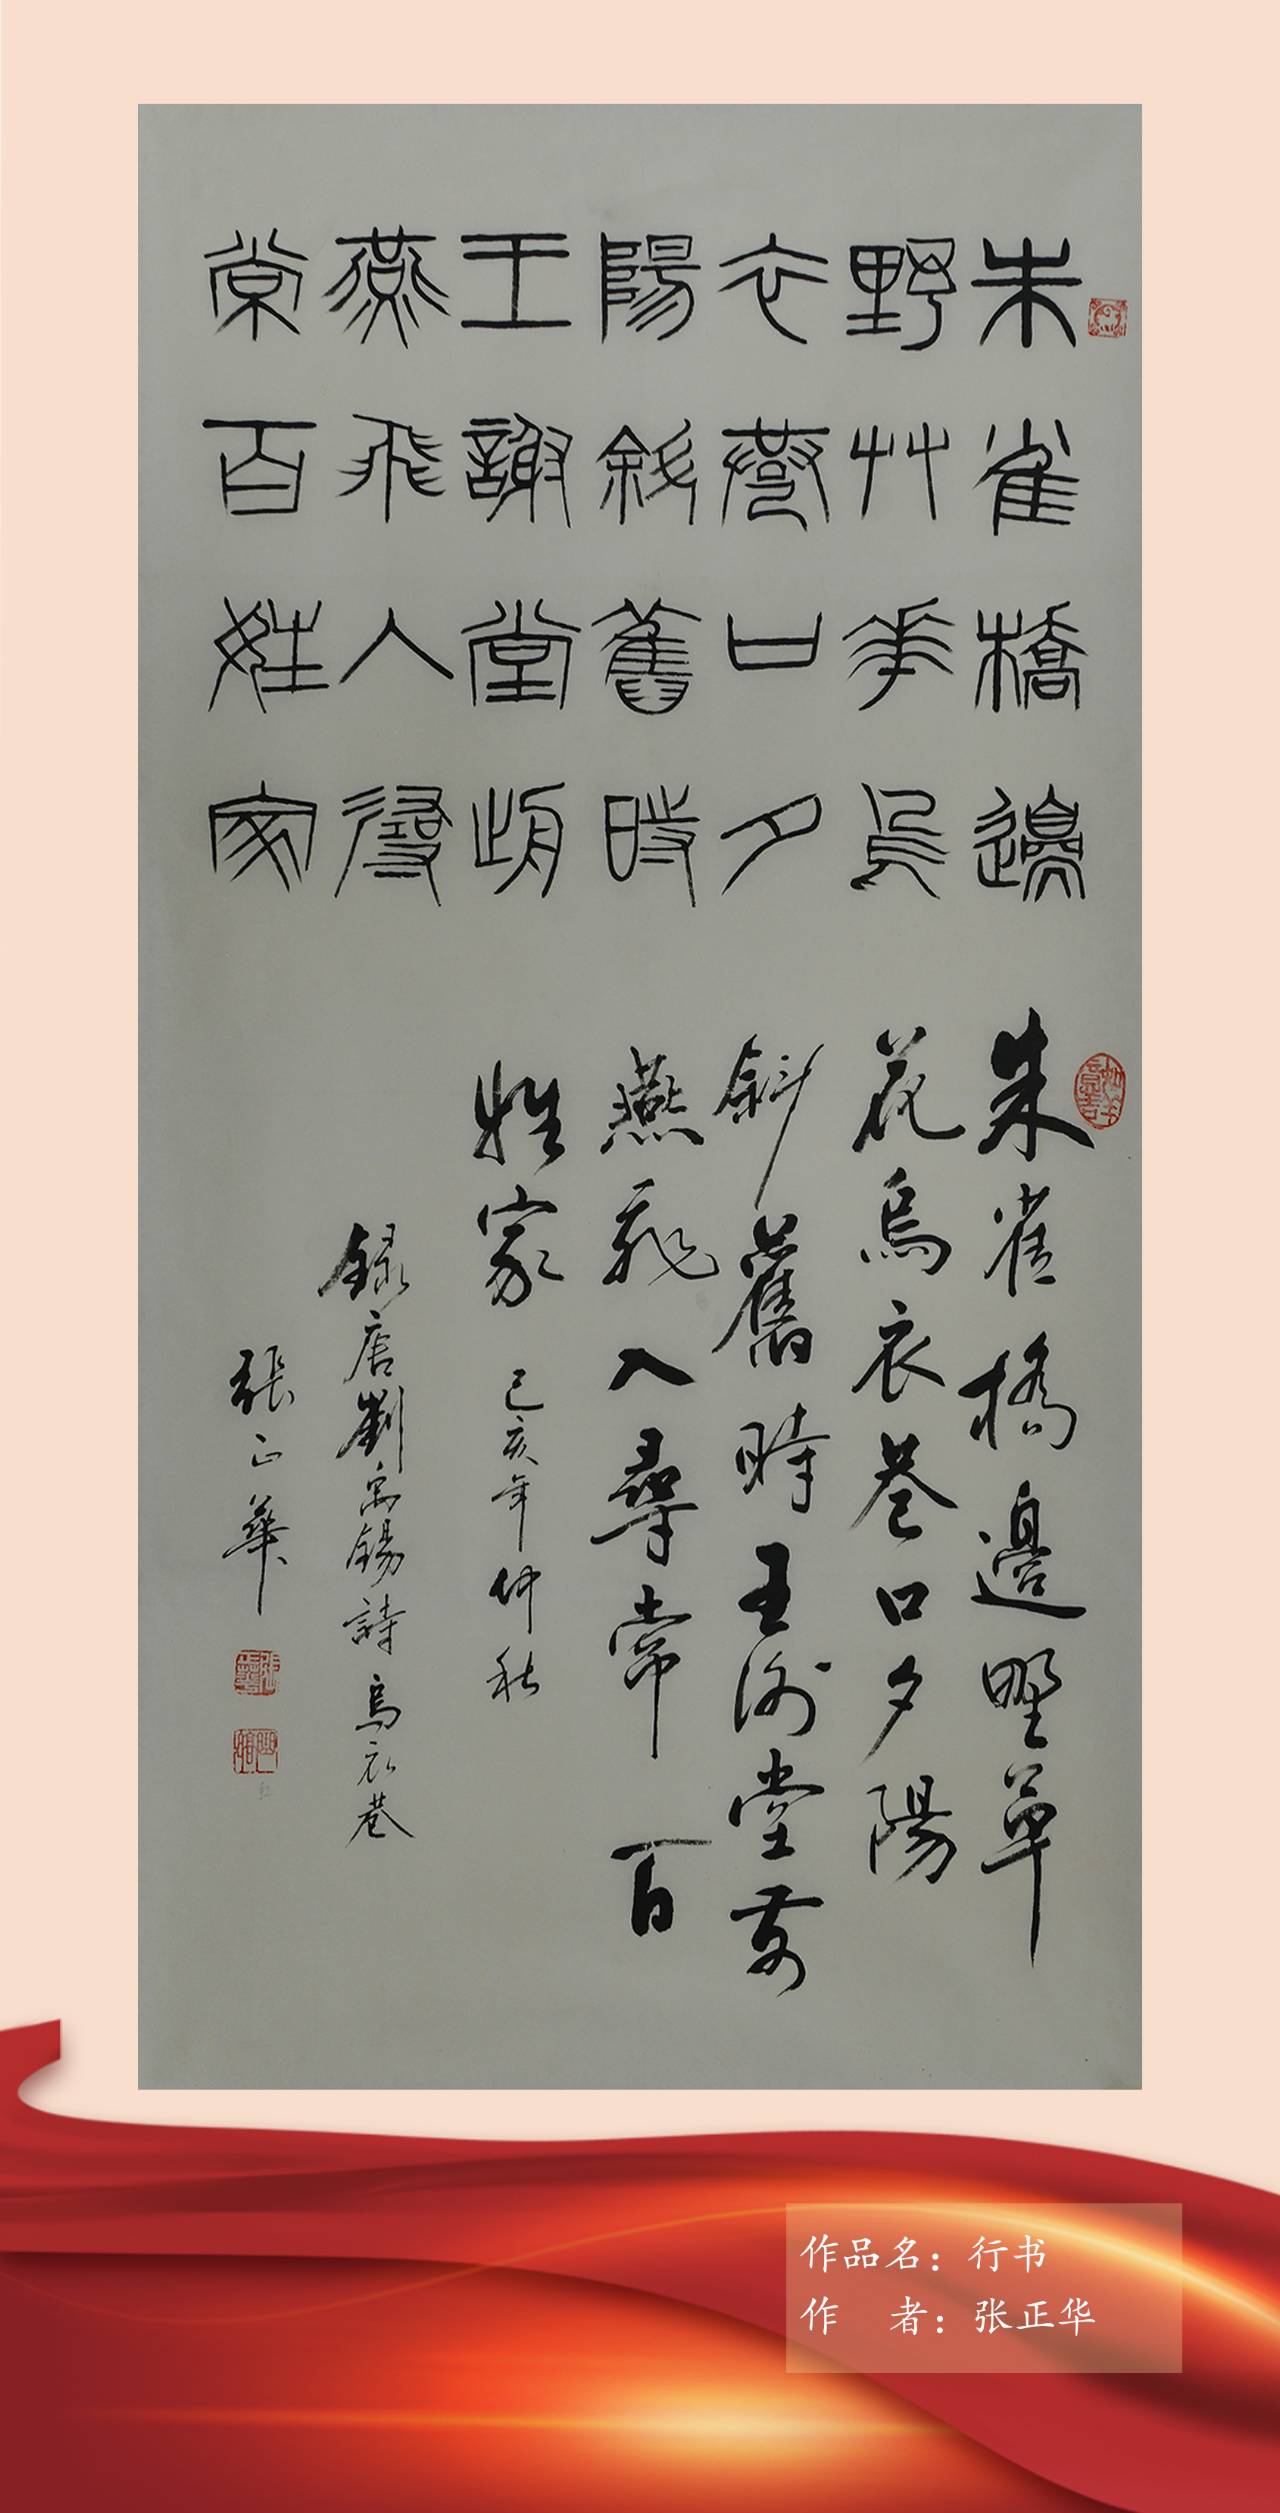 朱雀橋邊
野艸華烏
衣巷口夕
陽斜舊時
王謝堂前
燕飛入尋
常百姓家
朱雀橋邊野草
花烏衣巷口夕陽
斜舊時王謝堂前
燕飛入尋常百
姓家 己亥年仲秋
録唐劉禹錫詩烏衣巷
張正華
作品名：行书
作　者：张正华